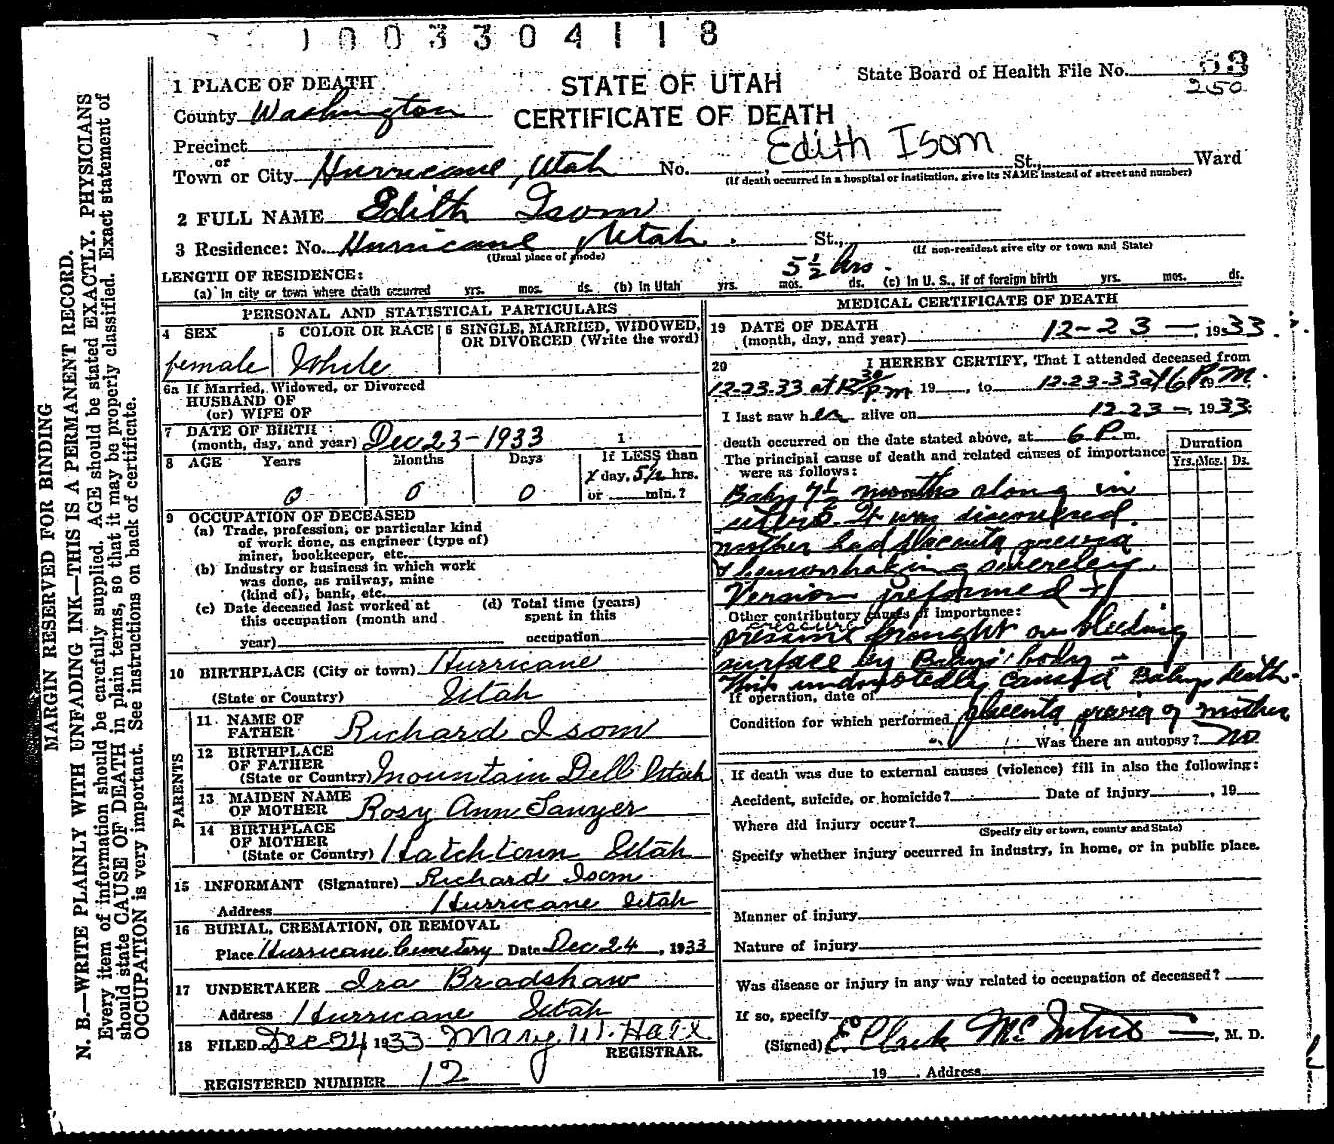 1003304118
State Board of Health File No. 63
250
STATE OF UTAH
CERTIFICATE OF DEATH
1 PLACE OF DEATH
County Washington
Precinct
or
Town or City Hurricane, Utah No. Edith Isom St., Ward
(If death occurred in a hospital or institution, give its NAME instead of street and number)
2 FULL NAME Edith Isom
3 Residence: No. Hurricane, Utah. St.,
(Usual place of abode) (If non-resident give city or town and State)
LENGTH OF RESIDENCE: 5 1/2 hrs.
(a) In city or town where death occurred yrs. mos. ds. (b) In Utah yrs. mos. ds. (c) In U. S., if of foreign birth yrs. mos. ds.
PERSONAL AND STATISTICAL PARTICULARS
4 SEX female
5 COLOR OR RACE White
6 SINGLE, MARRIED, WIDOWED, OR DIVORCED (Write the word)
6a If Married, Widowed, or Divorced
HUSBAND OF
(or) WIFE OF
7 DATE OF BIRTH
(month, day, and year) Dec 23-1933 1
8 AGE Years Months Days If LESS than
0 0 0 1 day, 5 1/2 hrs.
or min.?
9 OCCUPATION OF DECEASED
(a) Trade, profession, or particular kind
of work done, as engineer (type of)
miner, bookkeeper, etc.
(b) Industry or business in which work
was done, as railway, mine
(kind of), bank, etc.
(c) Date deceased last worked at
this occupation (month and
year)
(d) Total time (years)
spent in this
occupation
10 BIRTHPLACE (City or town) Hurricane
(State or Country) Utah
PARENTS
11 NAME OF
FATHER Richard Isom
12 BIRTHPLACE
OF FATHER
(State or Country) Mountain Dell Utah
13 MAIDEN NAME
OF MOTHER Rosy Ann Sawyer
14 BIRTHPLACE
OF MOTHER
(State or Country) Hatchtown Utah
15 INFORMANT (Signature) Richard Isom
Address Hurricane Utah
16 BURIAL, CREMATION, OR REMOVAL
Place Hurricane Cemetery Date Dec 24, 1933
17 UNDERTAKER Ira Bradshaw
Address Hurricane Utah
18 FILED Dec 24 1933 Mary W. Hall
REGISTRAR.
REGISTERED NUMBER 12
MEDICAL CERTIFICATE OF DEATH
19 DATE OF DEATH
(month, day, and year) 12-23-, 1933.
20 I HEREBY CERTIFY, That I attended deceased from
12-23-33 at 12 30 P.m 19, to 12-23-33 at 6 P.M.
I last saw her alive on 12-23-, 1933.
death occurred on the date stated above, at 6 P.m.
The principal cause of death and related causes of importance
were as follows:
Duration
Yrs. Mos. Ds.
Baby 7 1/2 months along in
uterus. It was discovered
mother had placenta previa
& hemorrhaking severeley
Version preformed &
Other contributory causes of importance:
pressure
pressure brought on bleeding
surface by Babys body -
This undoubtedly caused Babys death.
If operation, date of
Condition for which performed placenta previa of mother
Was there an autopsy? No
If death was due to external causes (violence) fill in also the following:
Accident, suicide, or homicide? Date of injury , 19
Where did injury occur?
(Specify city or town, county and State)
Specify whether injury occurred in industry, in home, or in public place.
Manner of injury
Nature of injury
Was disease or injury in any way related to occupation of deceased?
If so, specify
(Signed) Clark McIntire, M. D.
19 Address
MARGIN RESERVED FOR BINDING
N. B.—WRITE PLAINLY WITH UNFADING INK—THIS IS A PERMANENT RECORD.
Every item of information should be carefully supplied. AGE should be stated EXACTLY. PHYSICIANS
should state CAUSE OF DEATH in plain terms, so that it may be properly classified. Exact statement of
OCCUPATION is very important. See instructions on back of certificate.